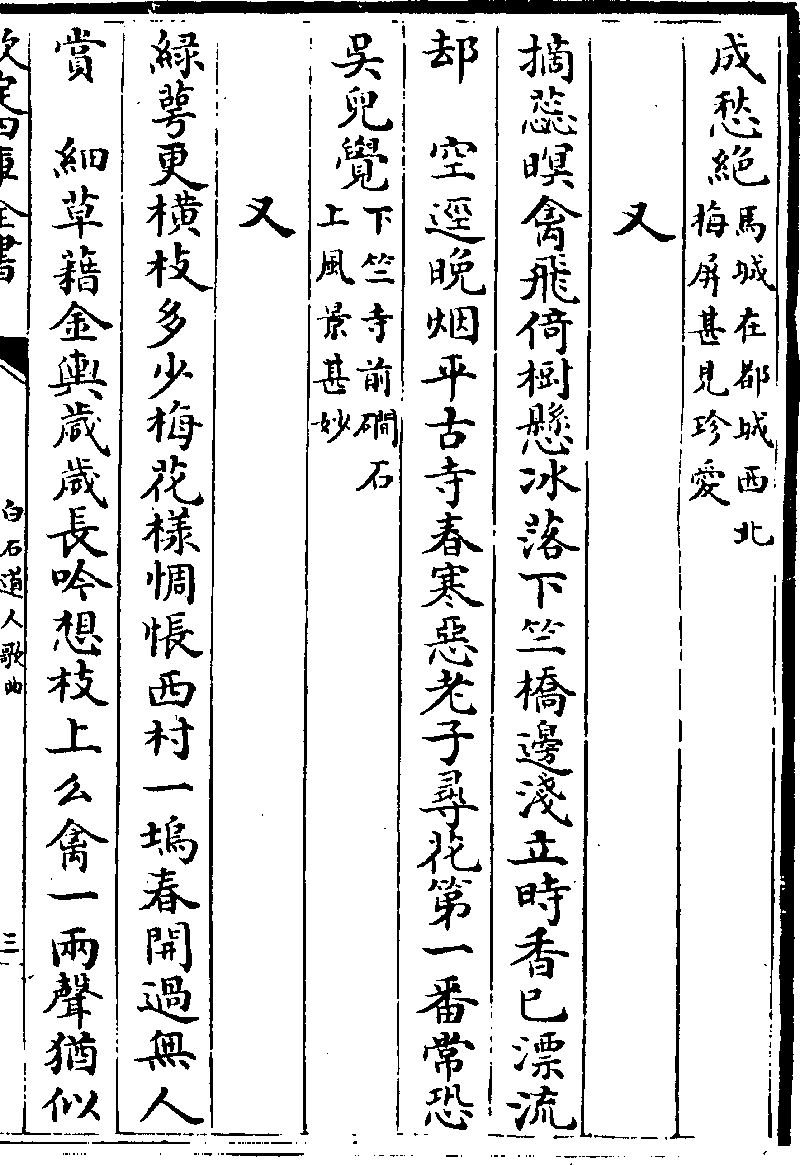 成愁絶馬城在都城西北
梅屏甚見珍愛
又
摘蕊暝禽飛倚樹懸冰落下竺橋邊淺立時香已漂流
却　空逕晚烟平古寺春寒惡老子尋花第一番常恐
吳兒覺下竺寺前磵石
上風景甚妙
又
綠萼更橫枝多少梅花樣惆悵西村一塢春開過無人
賞　細草藉金輿歲歲長吟想枝上么禽一兩聲猶似
欽定四庫全書
白石道人歌曲
三